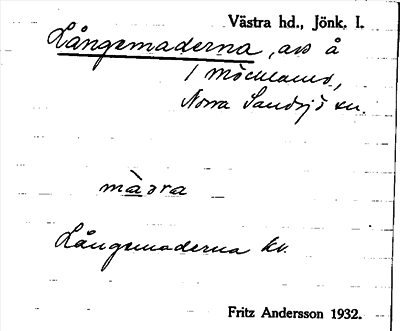 Västra hd., Jönk. l.
Långemaderna, avs å
1 Möcklamo,
Norra Sandsjö sn.
màdra
Långemaderna kv.
Fritz Andersson 1932.